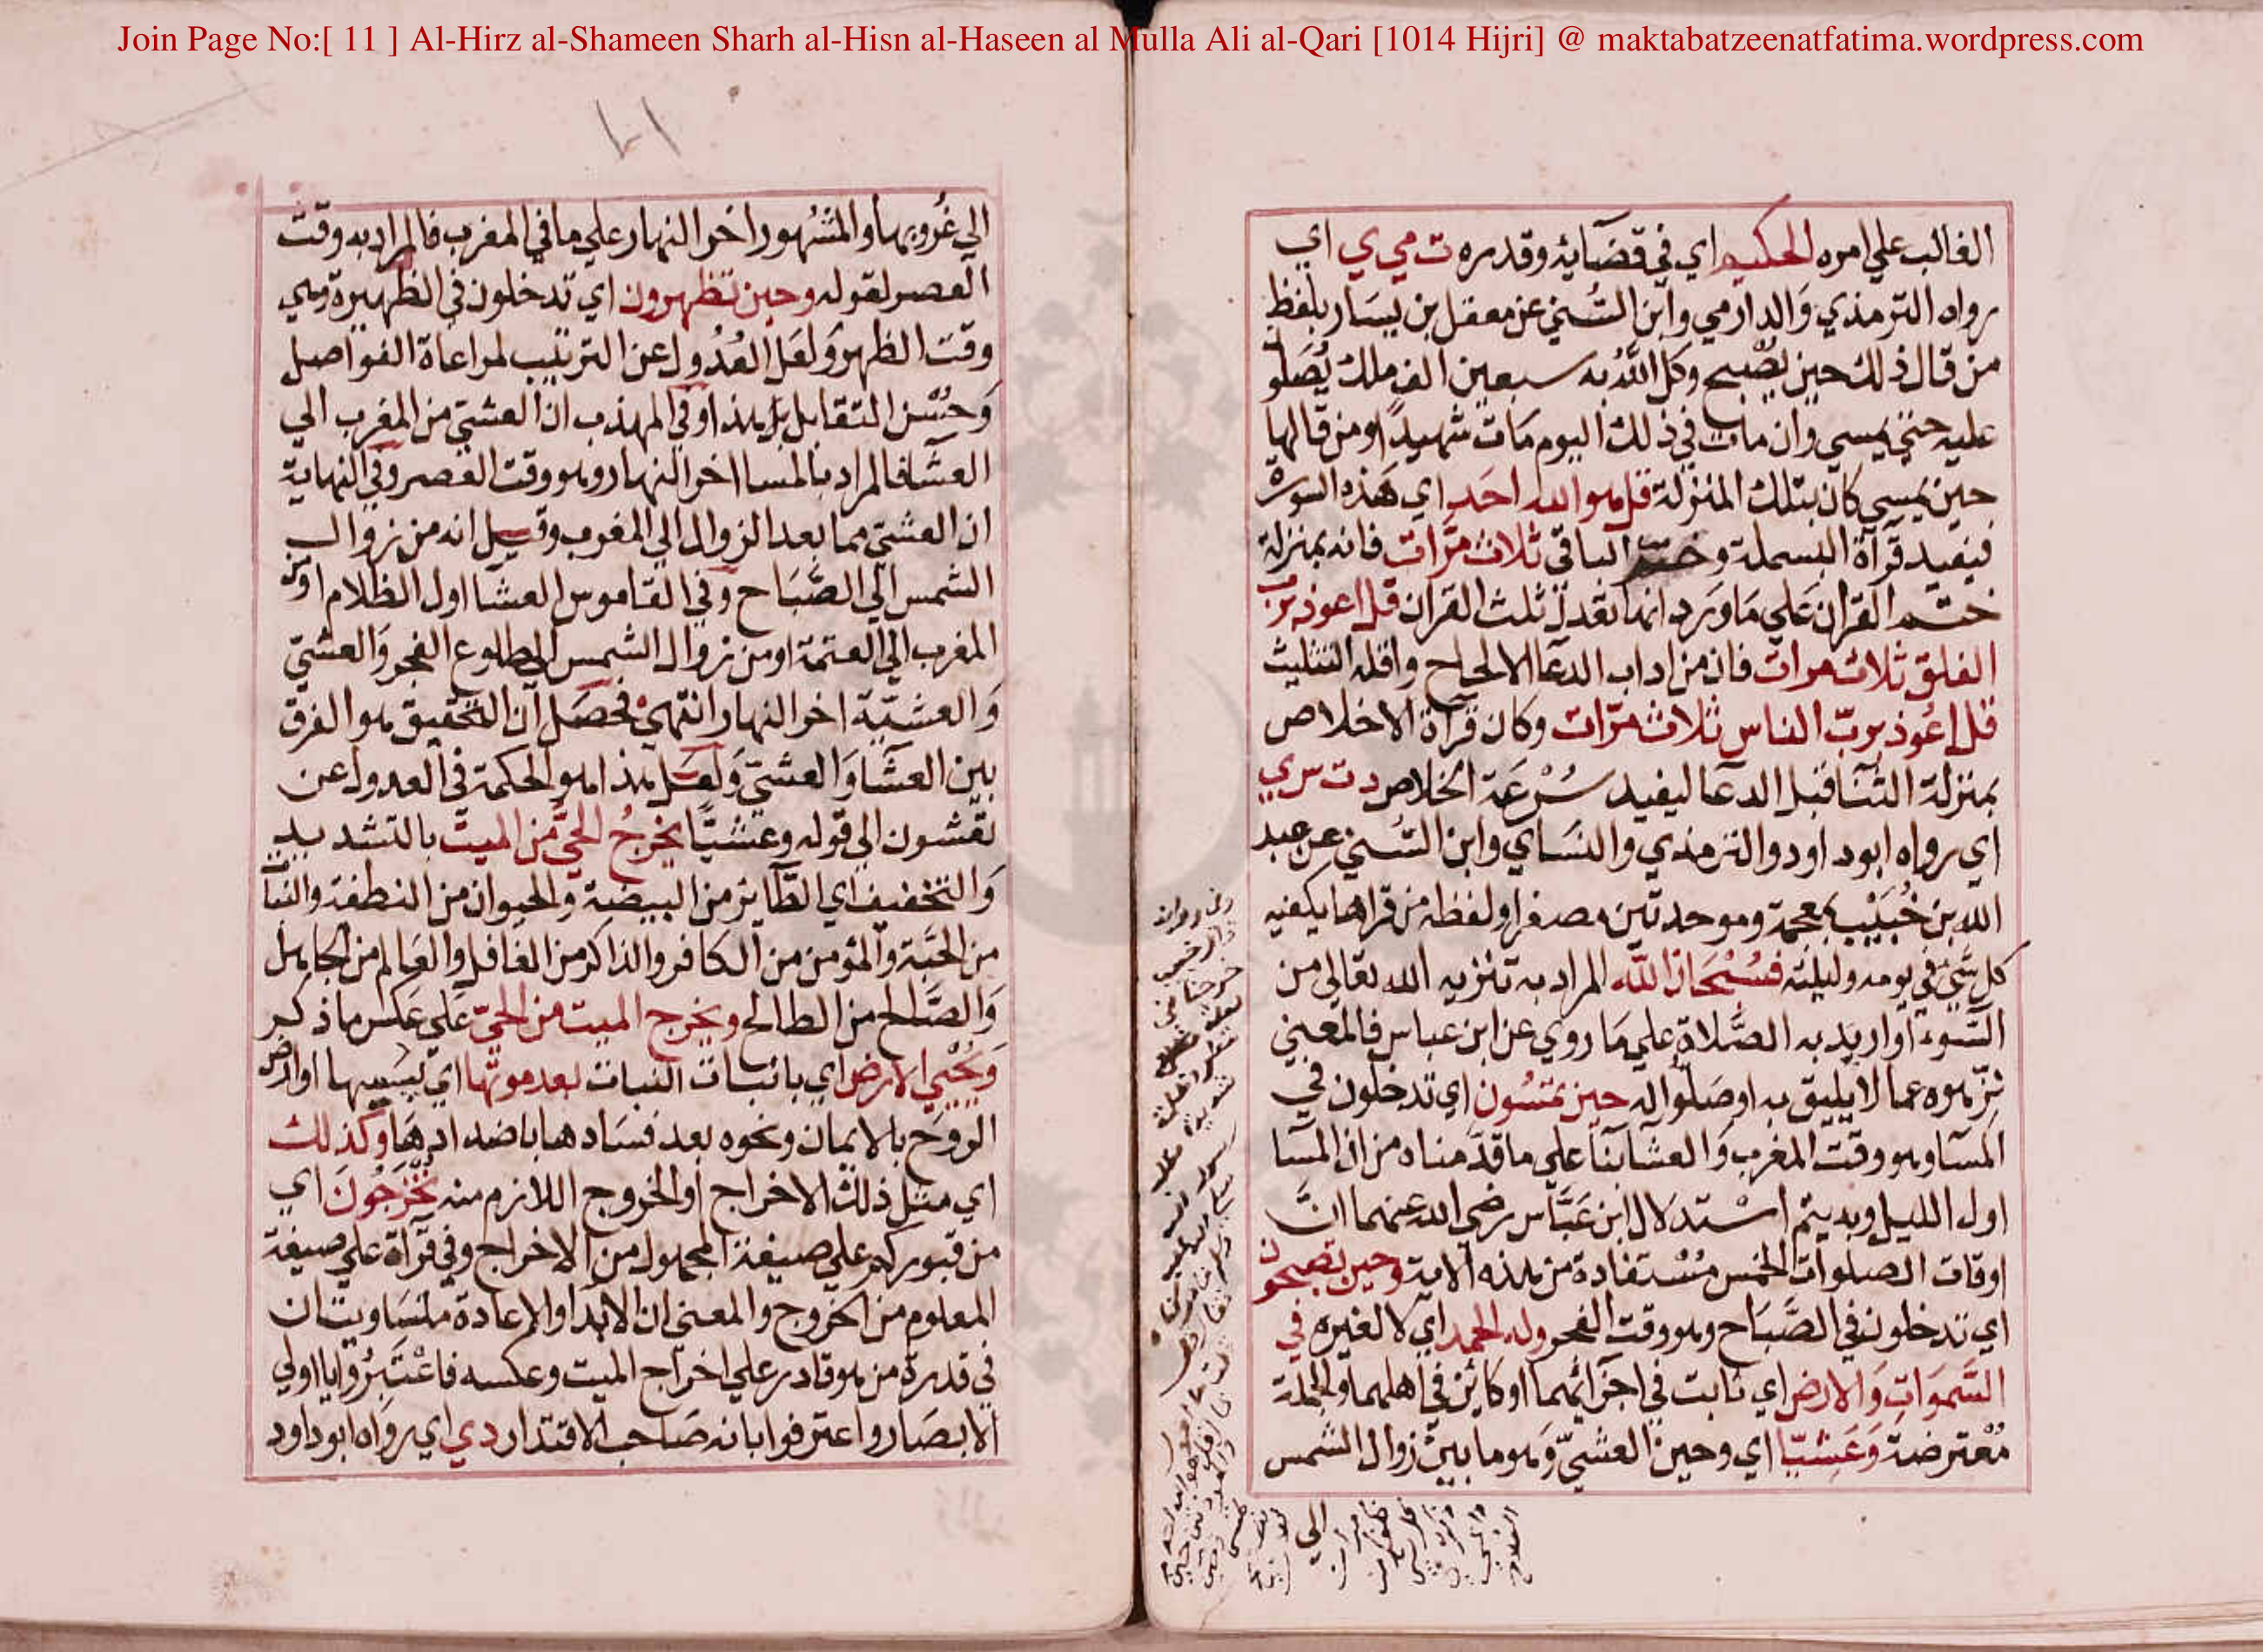 Join Page No:[ 11 ] Al-Hirz al-Shameen Sharh al-Hisn al-Haseen al Mulla Ali al-Qari [1014 Hijri] @ maktabatzeenatfatima.wordpress.com
الغالب علي امره الحكيم اي في قضآيه وقدره ت مي ي اي
رواه الترمذي والدارمي وابن السني عن معقل بن يسار بلفظ
من قال ذلك حين يصبح وكل الله به سبعين الف ملك يصلو
عليه حتي يمسي وان مات في ذلك اليوم مات شهيدا ومن قالها
حين يمسي كان بتلك المنزلة قل هو الله احد اي هذه السورة
فيفيد قرآة البسملة وختم الباقي ثلاث مرات فانه بمنزلة
ختم القران علي ما ورد انها تعدل ثلث القران قل اعوذ برب
الفلق ثلاث مرات فان من اداب الدعا الالحاح واقله التثليث
قل اعوذ برب الناس ثلاث مرات وكان قرآة الاخلاص
بمنزلة الثنا قبل الدعا ليفيد سرعة الخلاص د ت س ي
اي رواه ابو داود والترمذي والنساي وابن السني عن عبد
الله بن خبيب بمعجمة وموحدتين مصغرا ولفظه من قراها يكفيه
كل شئ في يومه وليلته فسبحان الله المراد به تنزيه الله تعالي من
السوء او اريد به الصلاة علي ما روي عن ابن عباس فالمعني
نزهوه عما لا يليق به او صلوا له حين تمسون اي تدخلون في
المسآ وهو وقت المغرب والعشآ بنآ علي ما قدمناه من ان المسآ
اول الليل وبه يتم استدلال ابن عباس رضي الله عنهما ان
اوقات الصلوات الخمس مستفادة من هذه الاية وحين تصبحون
اي تدخلون في الصباح وهو وقت الفجر وله الحمد اي لا لغيره في
السموات والارض اي ثابت في اجزائهما او كائن في اهلهما والجملة
معترضة وعشيا اي وحين العشي وهو ما بين زوال الشمس
الي
١١
الي غروبها والمشهور اخر النهار علي ما في المغرب فالمراد به وقت
العصر لقوله وحين تظهرون اي تدخلون في الظهيرة وهي
وقت الظهر ولعل العدول عن الترتيب لمراعاة الفواصل
وحسن التقابل بل هذا وفي المهذب ان العشي من المغرب الي
العشآ فالمراد بالمسا اخر النهار وهو وقت العصر وفي النهاية
ان العشي مما بعد الزوال الي المغرب وقيل انه من زوال
الشمس الي الصباح وفي القاموس العشا اول الظلام او من
المغرب الي العتمة او من زوال الشمس الي طلوع الفجر والعشي
والعشية اخر النهار انتهي فحصل ان التحقيق هو الفرق
بين العشآ والعشي ولعل هذا هو الحكمة في العدول عن
تعشون الي قوله وعشيا يخرج الحي من الميت بالتشديد
والتخفيف اي الطآير من البيضة والحيوان من النطفة والنبا
من الحبة والمؤمن من الكافر والذاكر من الغافل والعالم من الجاهل
والصالح من الطالح ويخرج الميت من الحي علي عكس ما ذكر
ويحيي الارض اي بانبات النبات بعد موتها اي يبسها او ارض
الروح بالايمان ونحوه بعد فسادها باضدادها وكذلك
اي مثل ذلك الاخراج او الخروج اللازم منه تخرجون اي
من قبوركم علي صيغة المجهول من الاخراج وفي قرآة علي صيغة
المعلوم من الخروج والمعني ان الابدا والاعادة متساويتان
في قدرة من هو قادر علي اخراج الميت وعكسه فاعتبروا يا اولي
الابصار واعترفوا بانه صاحب الاقتدار د ي اي رواه ابو داود